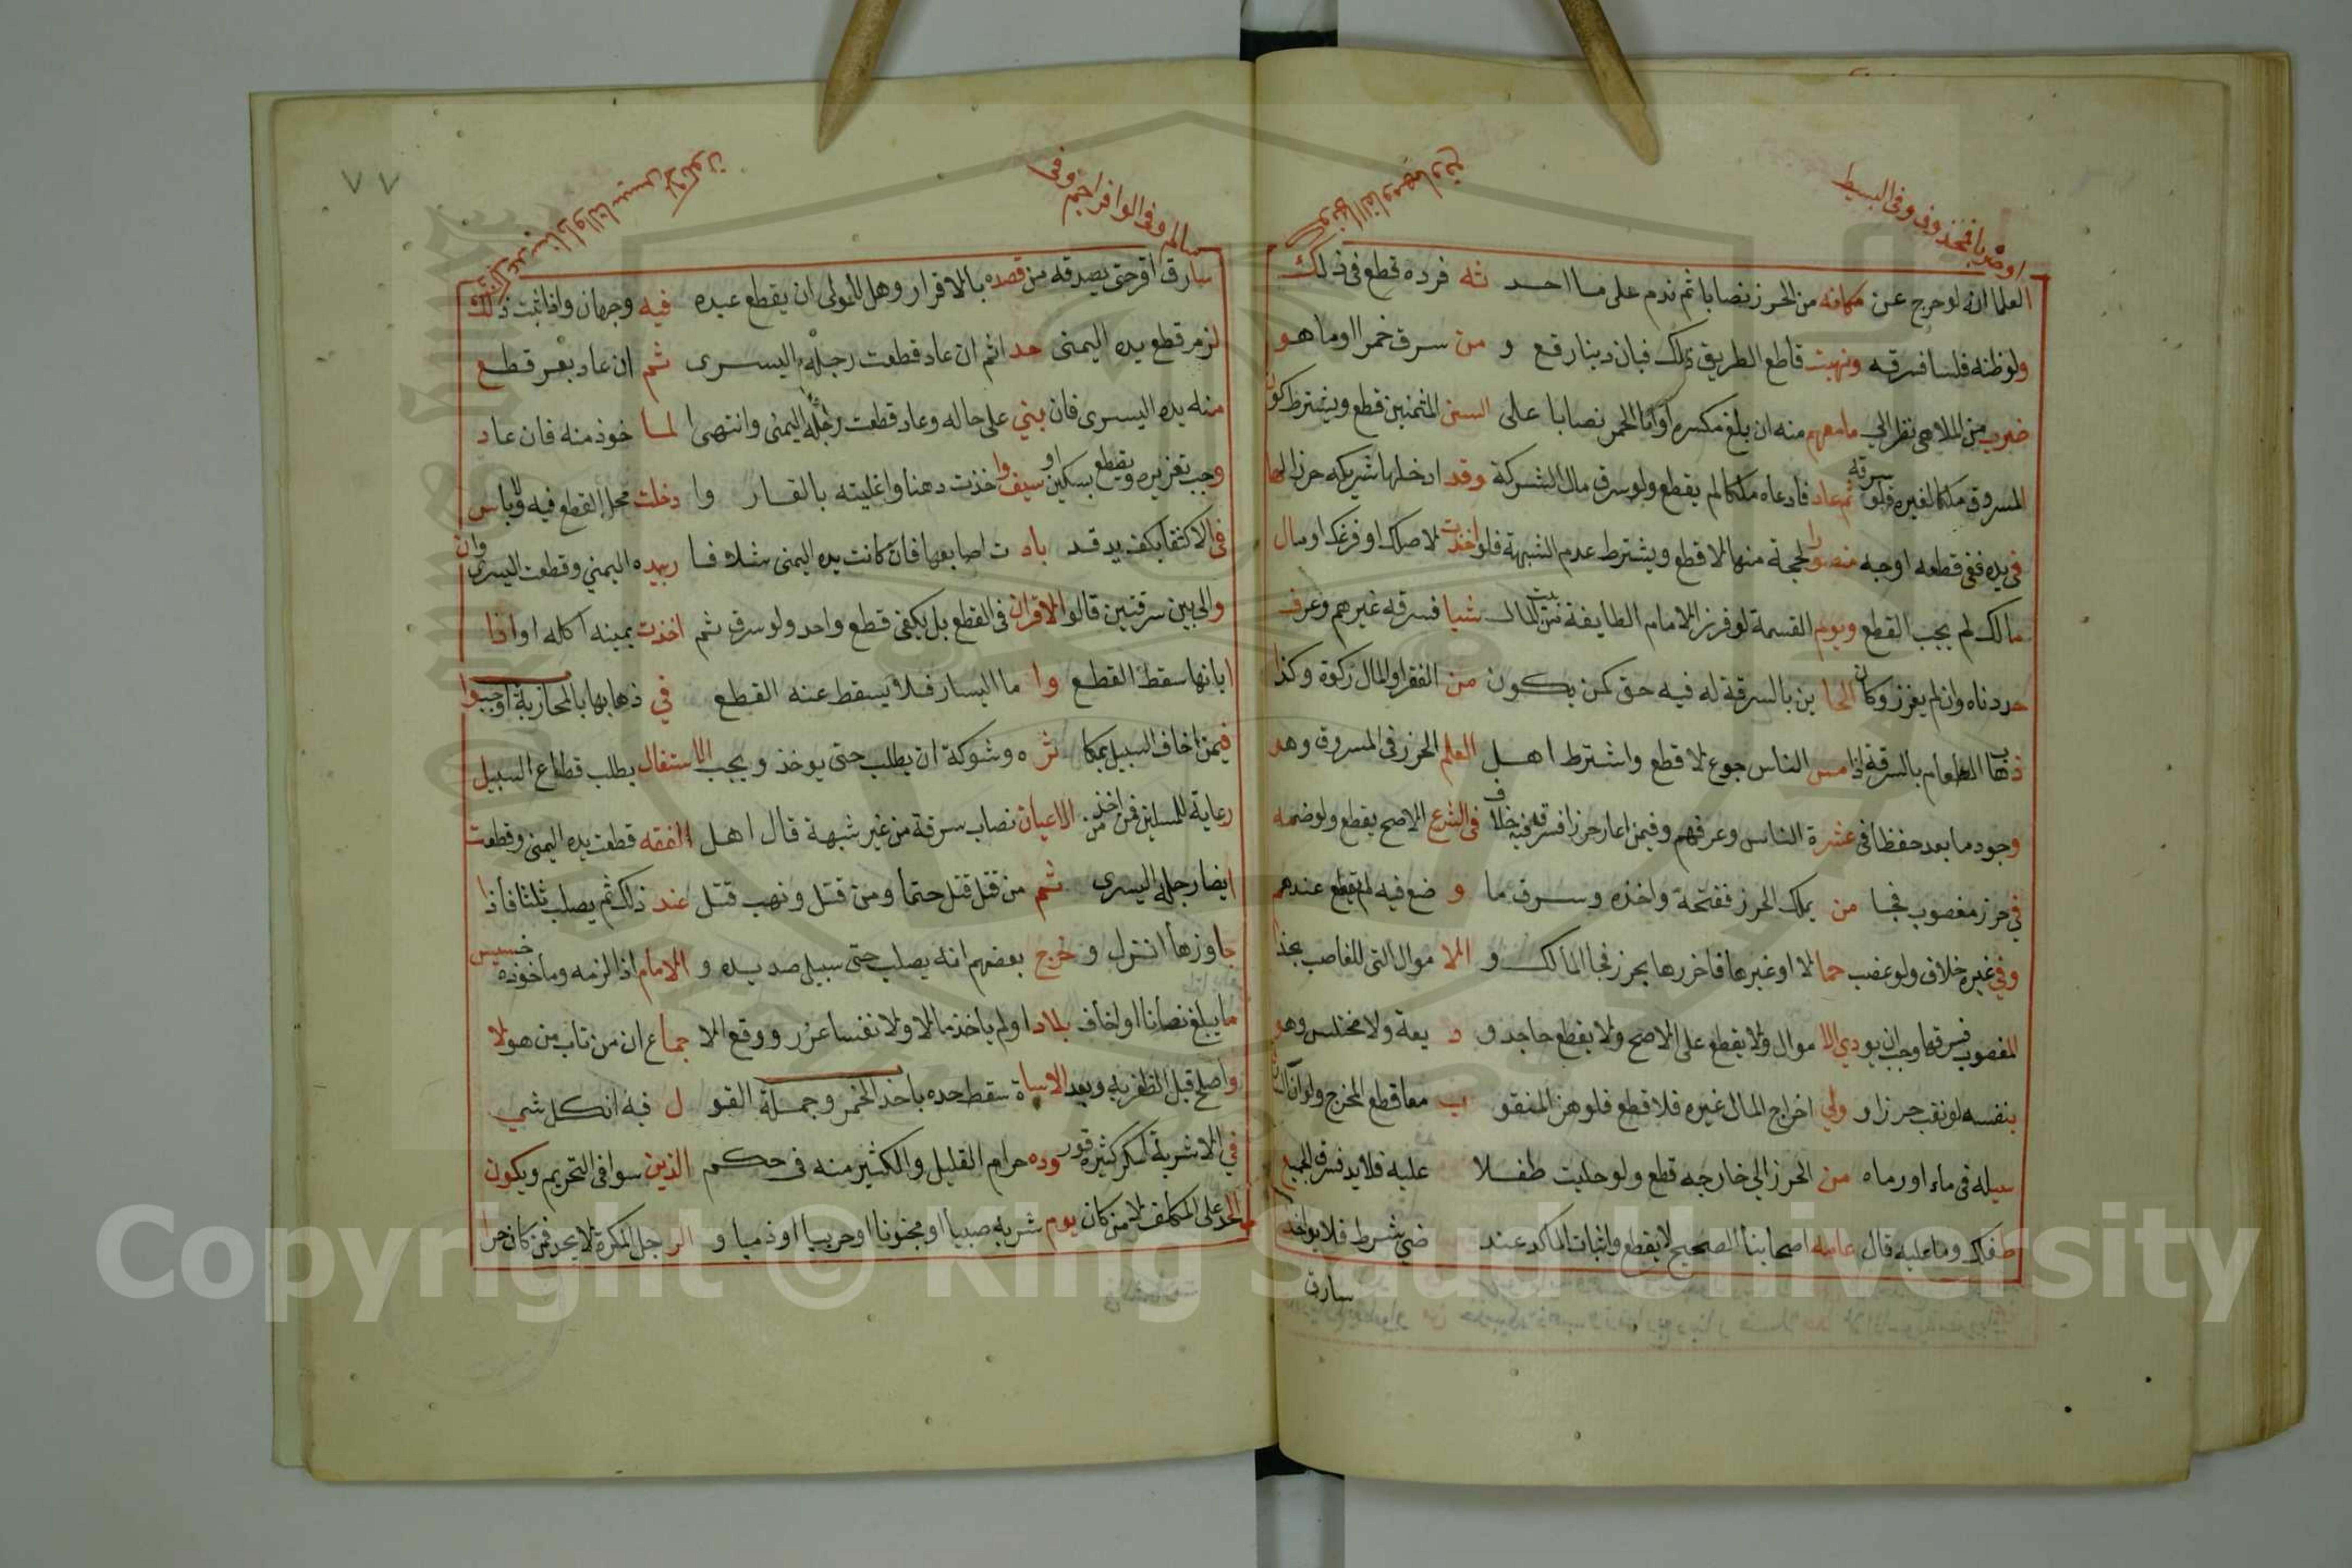 او ضرباً فمخذوف وفى البسيط
العلما انه لو خرج عن مكانه من الحرز نصابا ثم ندم على ما احد ثه فرده قطع فى ذلك
ولو ظنه فلسا فسرقه ونهبت قاطع الطريق ذلك فبان دينار قع و من سرق خمرا او ما هو
ضرب من الملاهى نظر الي ما معهم منه ان بلغ مكسره او انا الخمر نصابا على السنن المثمنين قطع ويشترط كون
المسروق ملكا لغيره فلو سرقه ثم عاد فادعاه ملكا لم يقطع ولو سرق مال الشركة وقد ادخلها شريكه حرزا لها
فى يده ففى قطعه اوجه منصو را لحجة منها لا قطع ويشترط عدم الشبهة فلو اخذت لاصلك او فرعك او مال
مالك لم يجب القطع ويوم القسمة لو فرز الامام الطايفة من المال شيا فسرقه غيرهم وعرف
حددناه وان لم يفرز وكان الخا ين بالسرقة له فيه حق كمن يكون من الفقرا والمال زكوة وكذا
ذهاب الطعام بالسرقة اذا مس الناس جوع لا قطع واشترط اهل العلم الحرز فى المسروق وهو
وجود ما يعد حفظا فى عشرة الناس وعرفهم وفيمن اعار حرزا فسرقه فيه خلاف فى الشرع الاصح يقطع ولو ضمه
في حرز مغصوب فجا من يملك الحرز ففتحه واخذه وسرق ما و ضع فيه لم يقطع عندهم
وفي غيره خلاف ولو غصب حما لا او غيرها فاحرزها بحرز فجا المالك و الا موال التى للغاصب
المغصوب فسرقها وجب ان يودي الا موال ولا يقطع على الاصح ولا يقطع جاحد و د يعة ولا مختلس وهو
بنفسه لو نقب حرزا و ولي اخراج المال غيره فلا قطع فلو هز المنقو ب معا قطع المخرج ولو ان
سيله فى ماء او رماه من الحرز الي خارجه قطع ولو حليت طفلا عليه قلايد فسرق الجميع
طفلك وما عليه قال عامه اصحابنا الصحيح لا يقطع واثبات الماكد عند ضي شرط فلا يواخذ
سارق
٧٧
سالم وفى الوافر اجم وفى
سارق اقر حتى يصدقه من قصده بالاقرار وهل للمولى ان يقطع عبده فيه وجهان واذا ثبت ذلك
لزم قطع يده اليمنى حد اثم ان عاد قطعت رجله اليسرى ثم ان عاد بعد قطع
منه يده اليسرى فان بني على حاله وعاد قطعت رجله اليمنى وانتهى الما خوذ منه فان عاد
وجب تعزيره ويقطع بسكين او سيف وا خذت دهنا واغليته بالقار وا دخلت محل القطع فيه ولا باس
فى الاكتفا بكف يد قد باد ت اصابعها فان كانت يده اليمنى شلا فا ربيده اليمني وقطعت اليسرى وان
والى بين سرقتين قالوا الاقران فى القطع بل يكفى قطع واحد ولو سرق ثم اخذت يمينه اكله او اذا
ابانها سقط القطع وا ما اليسار فلا يسقط عنه القطع في ذهابها بالمحاربة اوجبوا
فيمن اخاف السبيل بمكا ثر ه وشوكة ان يطلب حتى يوخذ ويجب الاستفال بطلب قطاع السبيل
رعاية للمسلين فمن اخذ من الاعيان نصاب سرقة من غير شبهة قال اهل الفقه قطعت يده اليمنى وقطعت
ايضا رجله اليسرى ثم من قتل قتل حتما ومن قتل ونهب قتل عند ذلك ثم يصلب ثلثا فاذا
جاوزها انزل و خرج بعضهم انه يصلب حتى سيل صديده و الامام اذا لزمه وماخوذه خسيس
ما يبلغ نصابا او اخاف بلادا ولم ياخذ مالا ولا نفسا عزر ووقع الا جماع ان من تاب من هولا
واصلح قبل الظفر به وبعد الاساة سقط حده باحد الخمر وجملة القو ل فيه ان كل شي
في الاشربة اسكر كثيره قور وده حرام القليل والكثير منه فى حكم الذين سوا فى التحريم ويكون
الحد على المكلف لا من كان يوم شربه صبيا او مجنونا او حربيا او ذميا و الر جل المكره لا يحد فمن كان حرا
Copyright © King Saud University